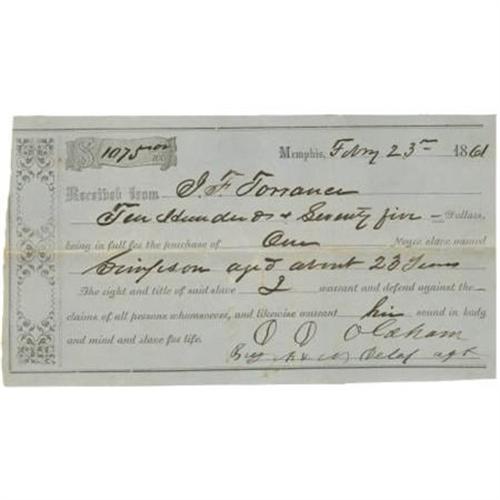 $ 1075 00/100
Memphis, Febry 23rd 1861
Received from J. F. Torrance
Ten Hundred & Seventy five Dollars,
being in full for the purchase of One Negro slave named
Simpson aged about 23 Years
The right and title of said slave I warrant and defend against the
claims of all persons whomsoever, and likewise warrant him sound in body
and mind and slave for life.
By